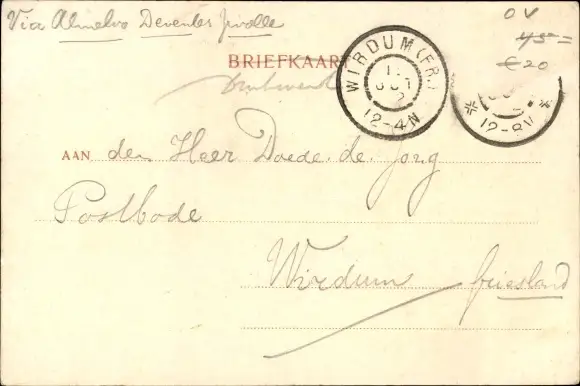 Via Almelo Deventer Zwolle
OV
45=
€20
BRIEFKAART
WIRDUM (FR.)
12-4N
12-8V
AAN den Heer Doede de Jong
Postbode
Wirdum friesland